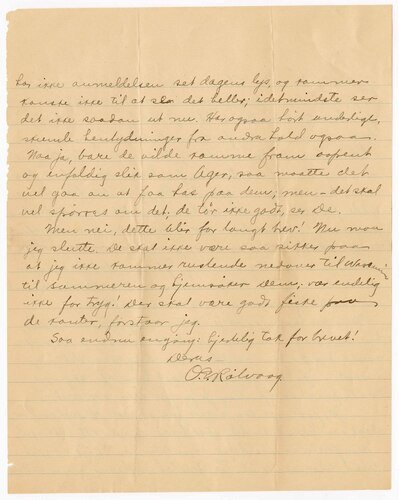 har ikke anmeldelsen set dagens lys, og kommer
kanske ikke til at se det heller; idetmindste ser
det ikke saadan ut nu. Har ogsaa hørt underlige,
hentydninger fra andre hold ogsaa.
Naa ja, bare de vilde komme fram aapent
og enfoldig slik som Ager, saa maatte det
vel gaa an at faa has paa dem; men det skal
vel spørres om det, de tør ikke godt, ser De.
Men nei, dette blir for langt brev! Nu maa
jeg slutte. De skal ikke være saa sikker paa
at jeg ikke kommer ruslende nedover til
til sommeren og Dem; vær endelig
ikke for tryg! Der skal være godt fiske paa
de kanter, forstaar jeg.
Saa endnu engang: Hjertelig tak for brevet!
Deres
O. E. Rølvaag